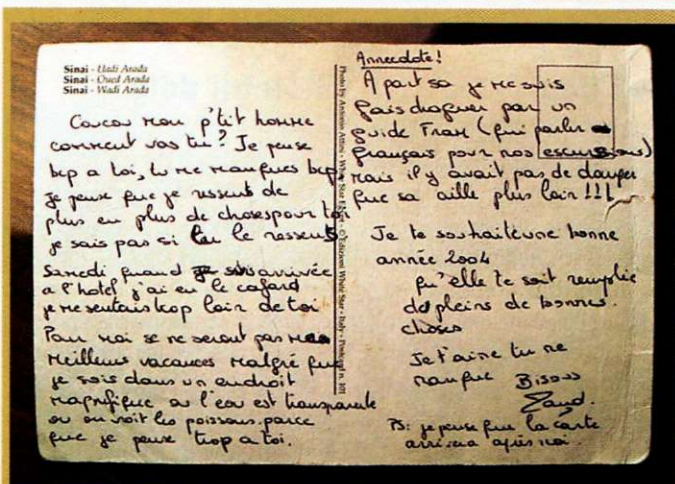 Sinai - Uadi Arada
Sinai - Oued Arada
Sinai - Wadi Arada
Coucou mon p'tit homme
comment vas tu ? Je pense
bcp a toi, tu me manques bcp
je pense que je ressent de
plus en plus de choses pour toi
je sais pas si tu le ressent
Samedi quand je suis arrivée
a l'hotel j'ai eu le cafard
je me sentais trop loin de toi
Pour moi se ne seront pas mes
meilleurs vacances malgré que
je sois dans un endroit
magnifique ou l'eau est transparente
ou on voit les poissons. parce
que je pense trop a toi.
Photo by Antonio Attini - White Star - © Edizioni White Star - Italy - Postcard n. 101
Annecdote !
A part sa je me suis
fais draguer par un
guide Fram (qui parler
français pour nos escursions)
mais il y avait pas de danger
que sa aille plus loin !!!
Je te souhaite une bonne
année 2004
qu'elle te soit remplie
de pleins de bonnes.
choses
Je t'aime tu me
manque Bisous
PS: je pense que la carte
arrivera après moi.